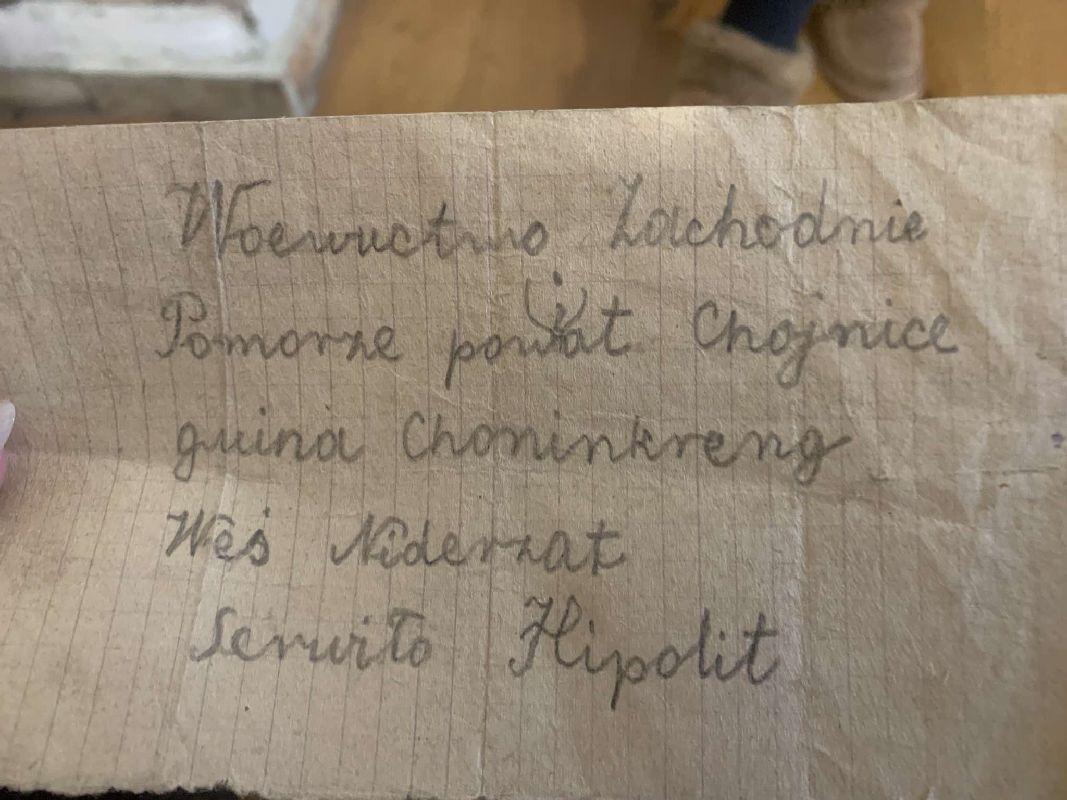 Woewuctwo Zachodnie
Pomorze powiat Chojnice
gmina Choninkreng
Weś Niderzat
Serwiło Hipolit